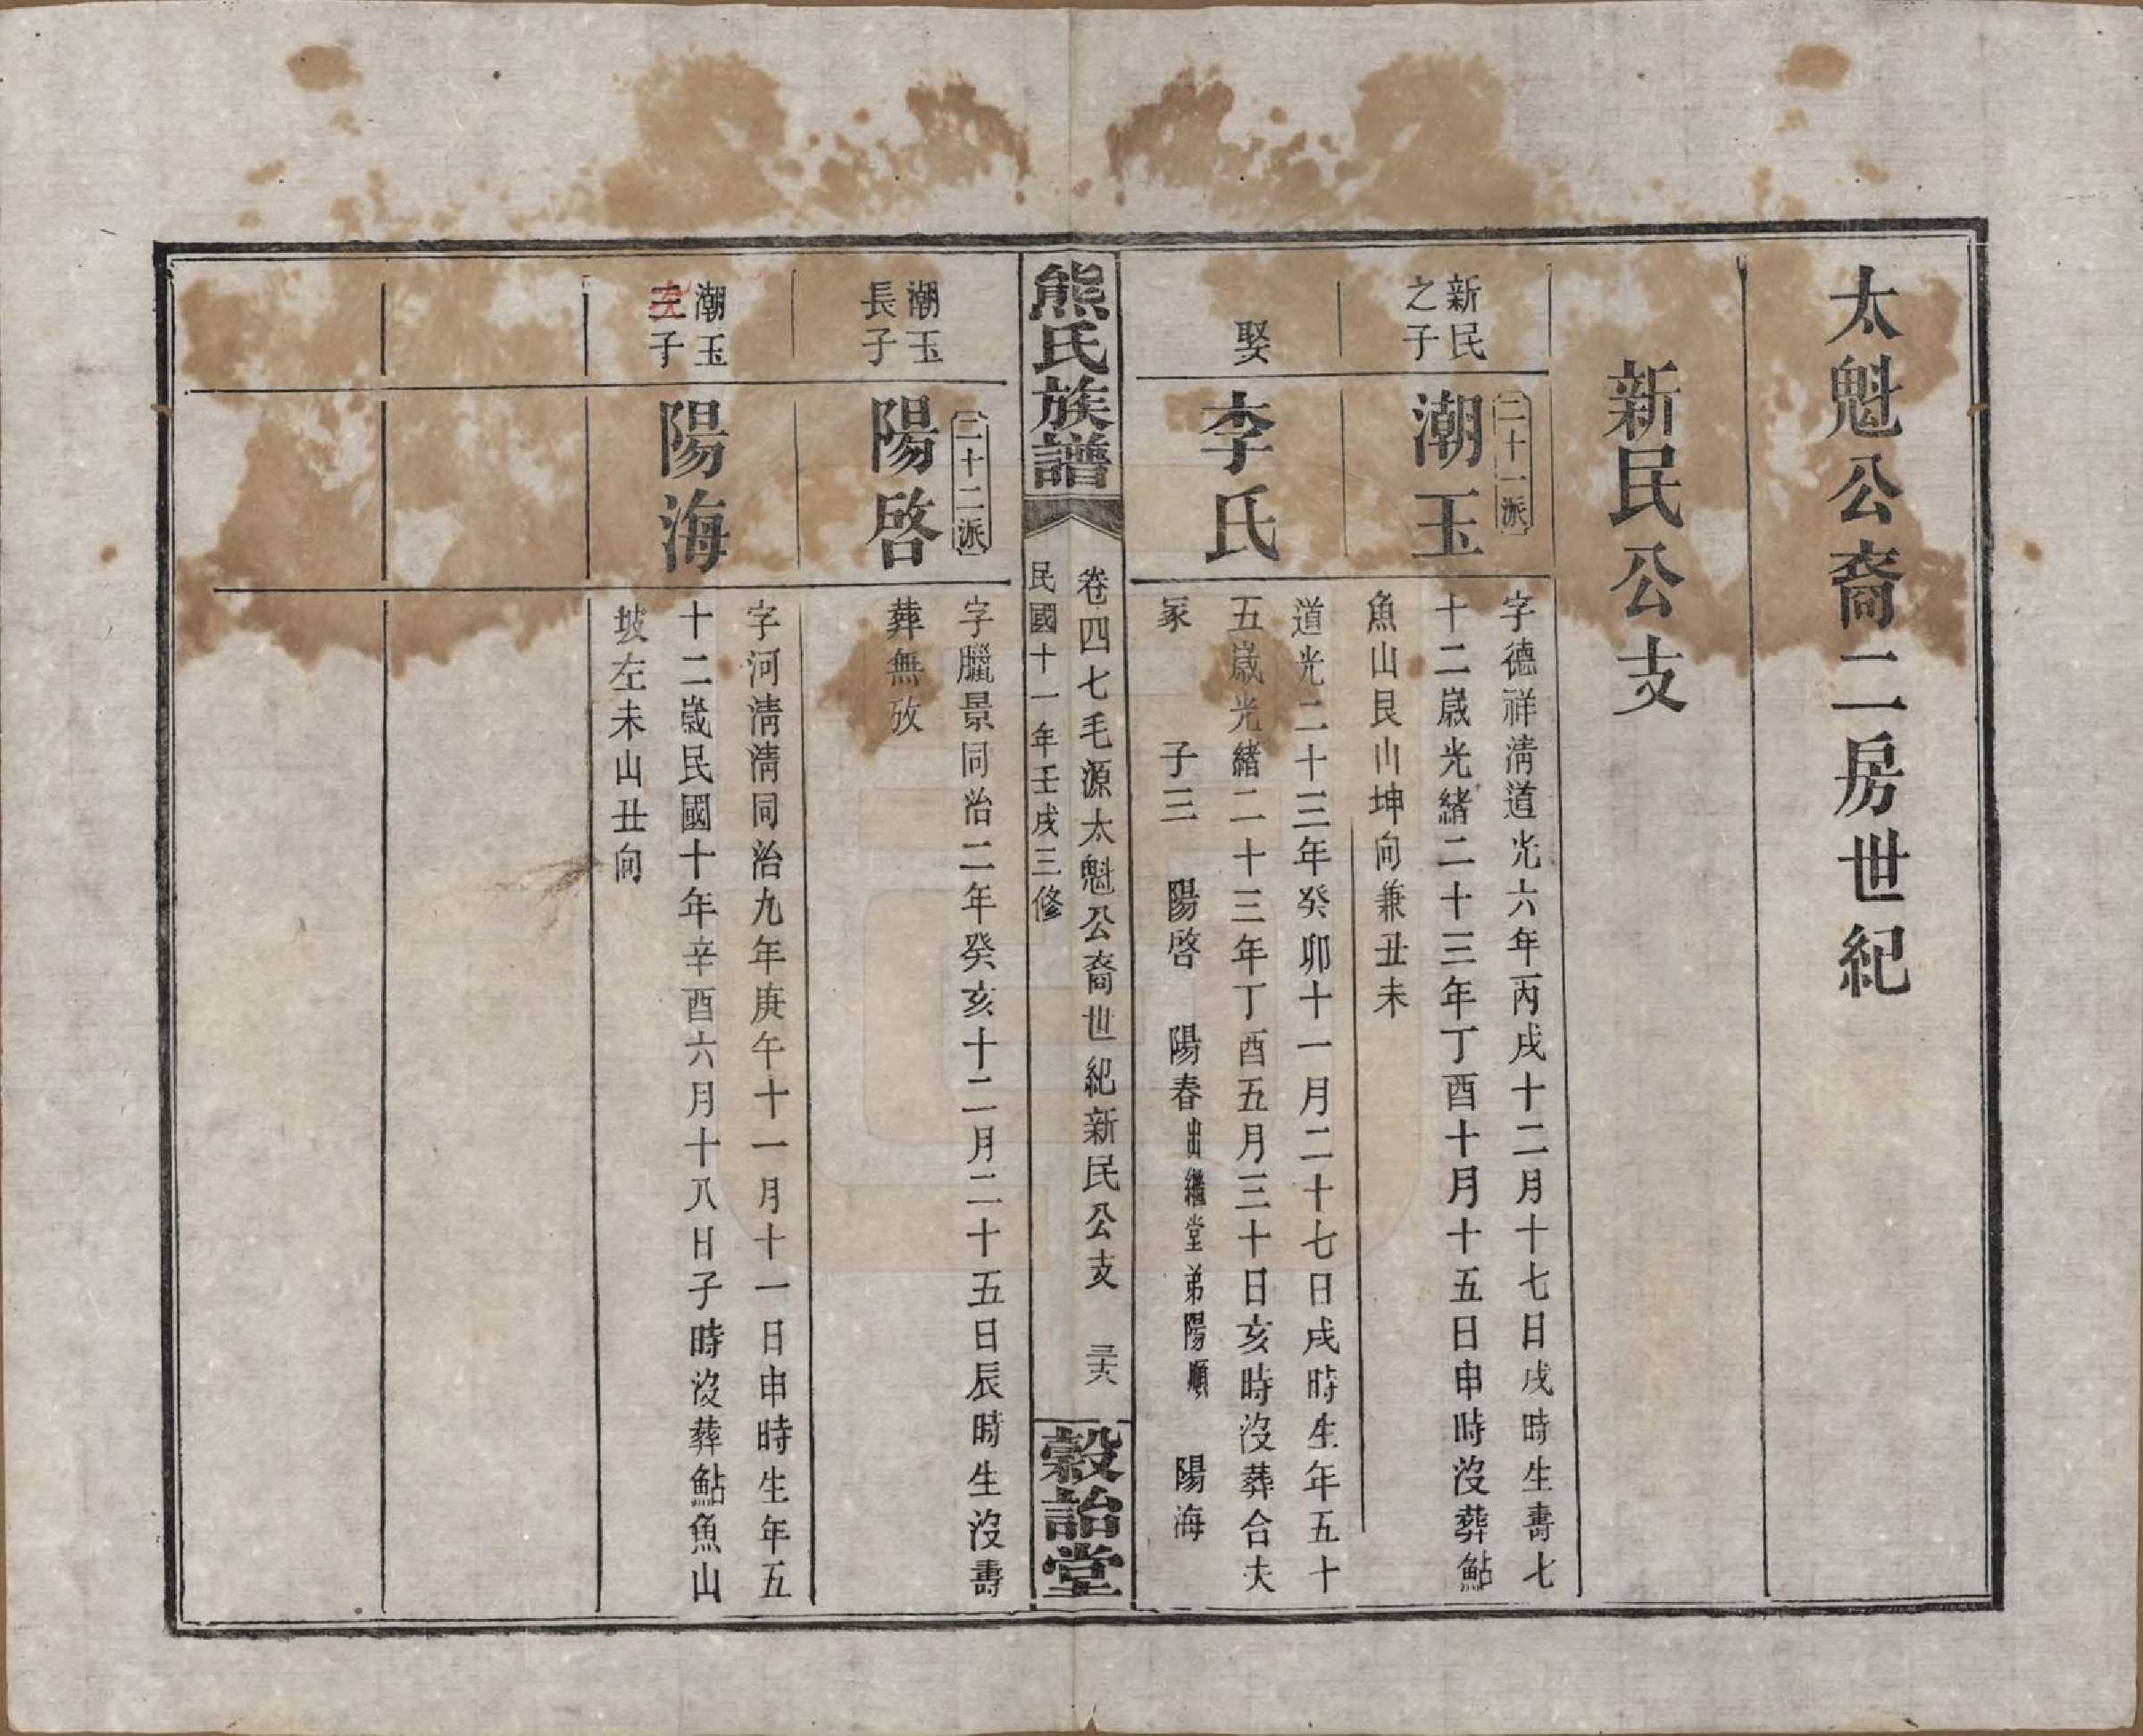 太魁公裔二房世紀
新民公支
新民
之子
二十一派
潮玉
字德祥淸道光六年丙戌十二月十七日戌時生壽七
十二歲光緒二十三年丁酉十月十五日申時沒葬鮎
魚山艮山坤向兼丑未
娶
李氏
道光二十三年癸卯十一月二十七日戌時生年五十
五歲光緒二十三年丁酉五月三十日亥時沒葬合夫
冢 子三 陽啓 陽春出繼堂弟陽順 陽海
熊氏族譜
卷四七毛源太魁公裔世紀新民公支 三六
民國十一年壬戌三修
穀詒堂
潮玉
長子
二十二派
陽啓
字臘景同治二年癸亥十二月二十五日辰時生沒壽
葬無攷
潮玉
三子
陽海
字河淸淸同治九年庚午十一月十一日申時生年五
十二歲民國十年辛酉六月十八日子時沒葬鮎魚山
坡左未山丑向